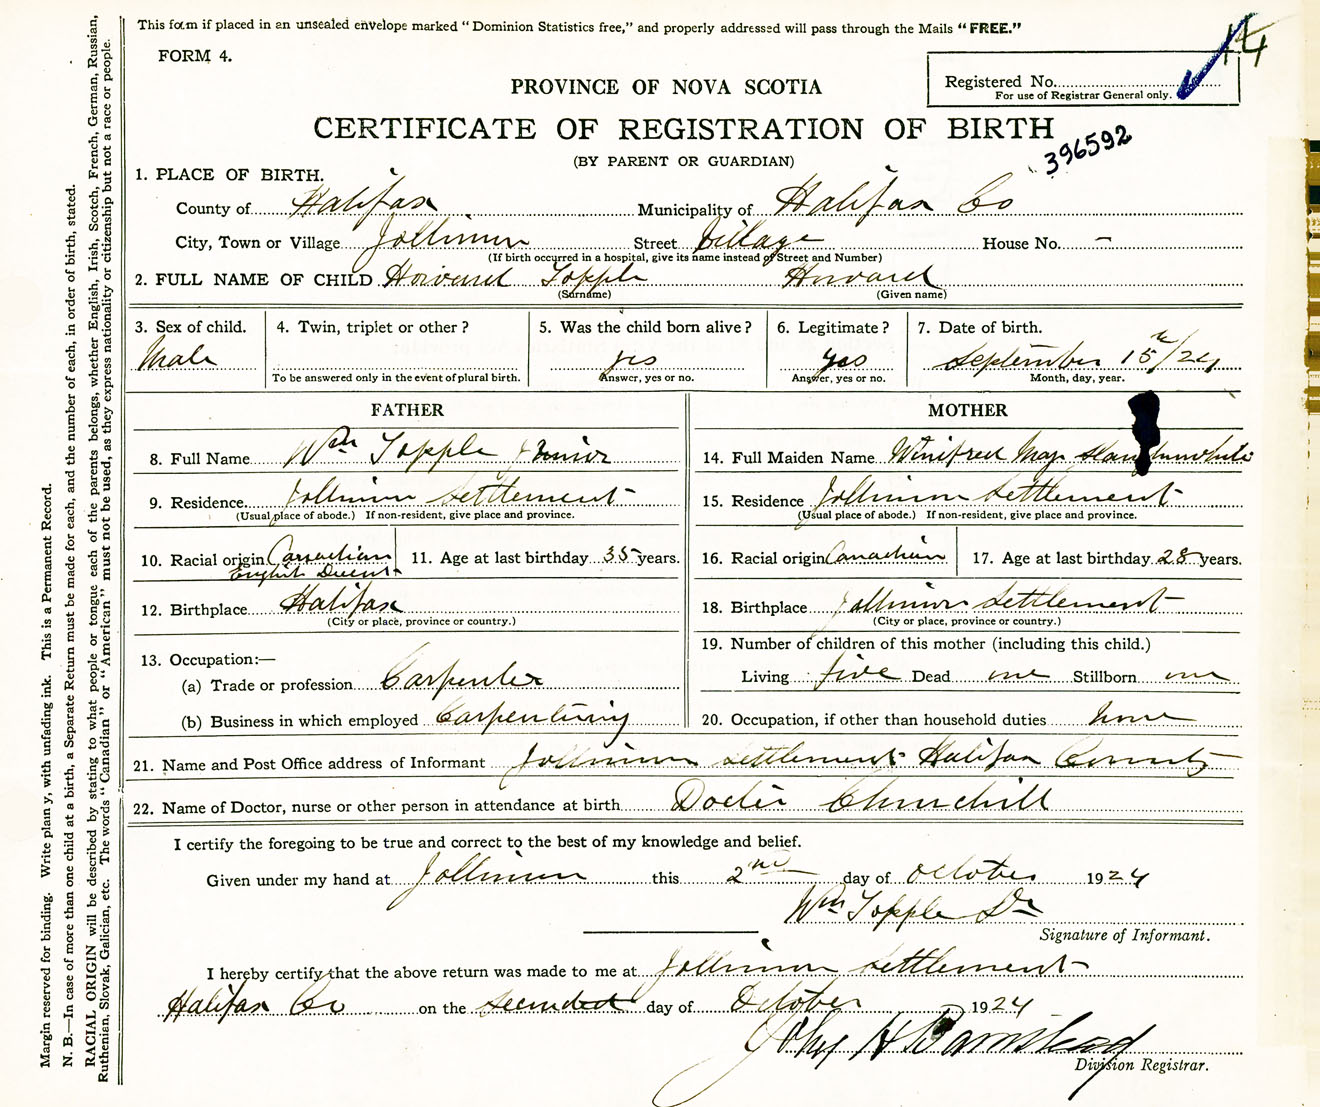 This form if placed in an unsealed envelope marked "Dominion Statistics free," and properly addressed will pass through the Mails "FREE."
FORM 4.
14
Registered No.
For use of Registrar General only.
PROVINCE OF NOVA SCOTIA
CERTIFICATE OF REGISTRATION OF BIRTH
396592
(BY PARENT OR GUARDIAN)
1. PLACE OF BIRTH.
County of Halifax Municipality of Halifax Co
City, Town or Village Jollimur Street Village House No. -
(If birth occurred in a hospital, give its name instead of Street and Number)
2. FULL NAME OF CHILD Howard Topple Howard
(Surname) (Given name)
3. Sex of child. 4. Twin, triplet or other? 5. Was the child born alive? 6. Legitimate? 7. Date of birth.
Male yes yes September 15th/24
To be answered only in the event of plural birth. Answer, yes or no. Answer, yes or no. Month, day, year.
FATHER MOTHER
8. Full Name Wm Topple Junior 14. Full Maiden Name Winifred May
9. Residence Jollimur Settlement 15. Residence Jollimur Settlement
(Usual place of abode.) If non-resident, give place and province. (Usual place of abode.) If non-resident, give place and province.
10. Racial origin Canadian 11. Age at last birthday 35 years. 16. Racial origin Canadian 17. Age at last birthday 28 years.
English Decent
12. Birthplace Halifax 18. Birthplace Jollimur Settlement
(City or place, province or country.) (City or place, province or country.)
13. Occupation:— 19. Number of children of this mother (including this child.)
(a) Trade or profession Carpenter Living five Dead one Stillborn one
(b) Business in which employed Carpentering 20. Occupation, if other than household duties none
21. Name and Post Office address of Informant Jollimur Settlement Halifax County
22. Name of Doctor, nurse or other person in attendance at birth Doctor Churchill
I certify the foregoing to be true and correct to the best of my knowledge and belief.
Given under my hand at Jollimur this 2nd day of October 1924
Wm Topple Sr
Signature of Informant.
I hereby certify that the above return was made to me at Jollimur Settlement
Halifax Co on the day of October 1924
John H Barnstead
Division Registrar.
Margin reserved for binding. Write plain y, with unfading ink. This is a Permanent Record.
N. B.—In case of more than one child at a birth, a Separate Return must be made for each, and the number of each, in order of birth, stated.
RACIAL ORIGIN will be described by stating to what people or tongue each of the parents belongs, whether English, Irish, Scotch, French, German, Russian,
Ruthenian, Slovak, Galician, etc. The words "Canadian" or "American" must not be used, as they express nationality or citizenship but not a race or people.